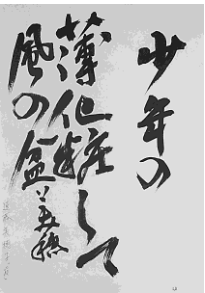 少年の
薄化粧して
風の盆
美穂